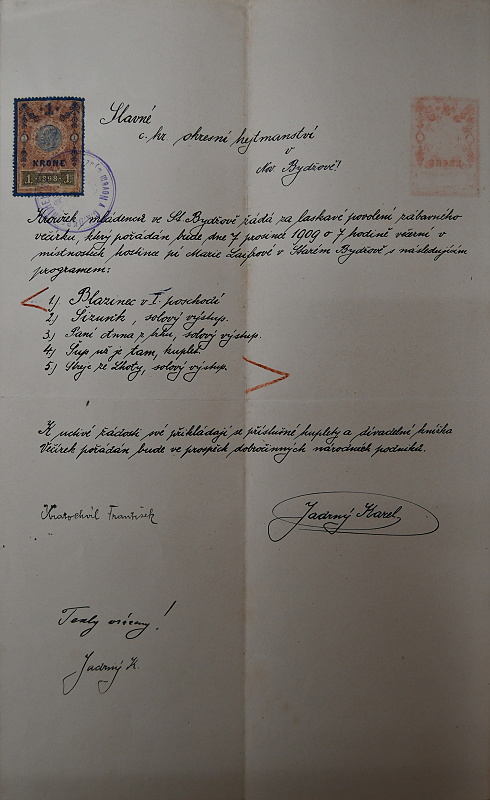 1
KRONE
1 1898 1
Slavné
c. kr. okresní hejtmanství
v
Nov. Bydžově!
Kroužek mládenců ve St. Bydžově žádá za laskavé povolení zábavného
večírku, který pořádán bude dne 7. prosince 1909 o 7 hodině večerní v
místnostech hostince pí Marie Laufrové v Starém Bydžově s následujícím
programem:
1.) Blázinec v I. poschodí
2.) solový výstup.
3.) Paní Anna z trhu, solový výstup.
4.) Sup už je tam, kuplet.
5.) Strejc ze Lhoty, solový výstup.
K uctivé žádosti své přikládají se příslušné kuplety a divadelní knížka
Večírek pořádán bude ve prospěch dobročinných národních podniků.
Kratochvíl František
Jadrný Karel
Texty vráceny!
Jadrný K.